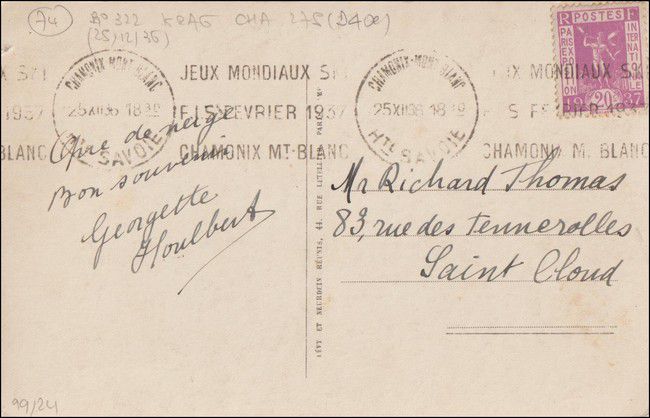 74
Bº 322 KRAG CHA 275 (D40e)
(25/12/36)
R POSTES F
PARIS EXPOSITION INTERNATIONALE
1937
20c
CHAMONIX-MONT BLANC
25 XII 36 18 30
HTE SAVOIE
JEUX MONDIAUX SKI
F. I. S FEVRIER 1937
CHAMONIX MT-BLANC
CHAMONIX-MONT BLANC
25 XII 36 18 30
HTE SAVOIE
JEUX MONDIAUX SKI
F. I. S FEVRIER 1937
CHAMONIX M. BLANC
1937
BLANC
de neige
Bon souvenir
Georgette
Houlbert
LÉVY ET NEURDEIN RÉUNIS, 44, RUE LETELLIER, PARIS
Mr Richard Thomas
83, rue des Tennerolles
Saint Cloud
99/24